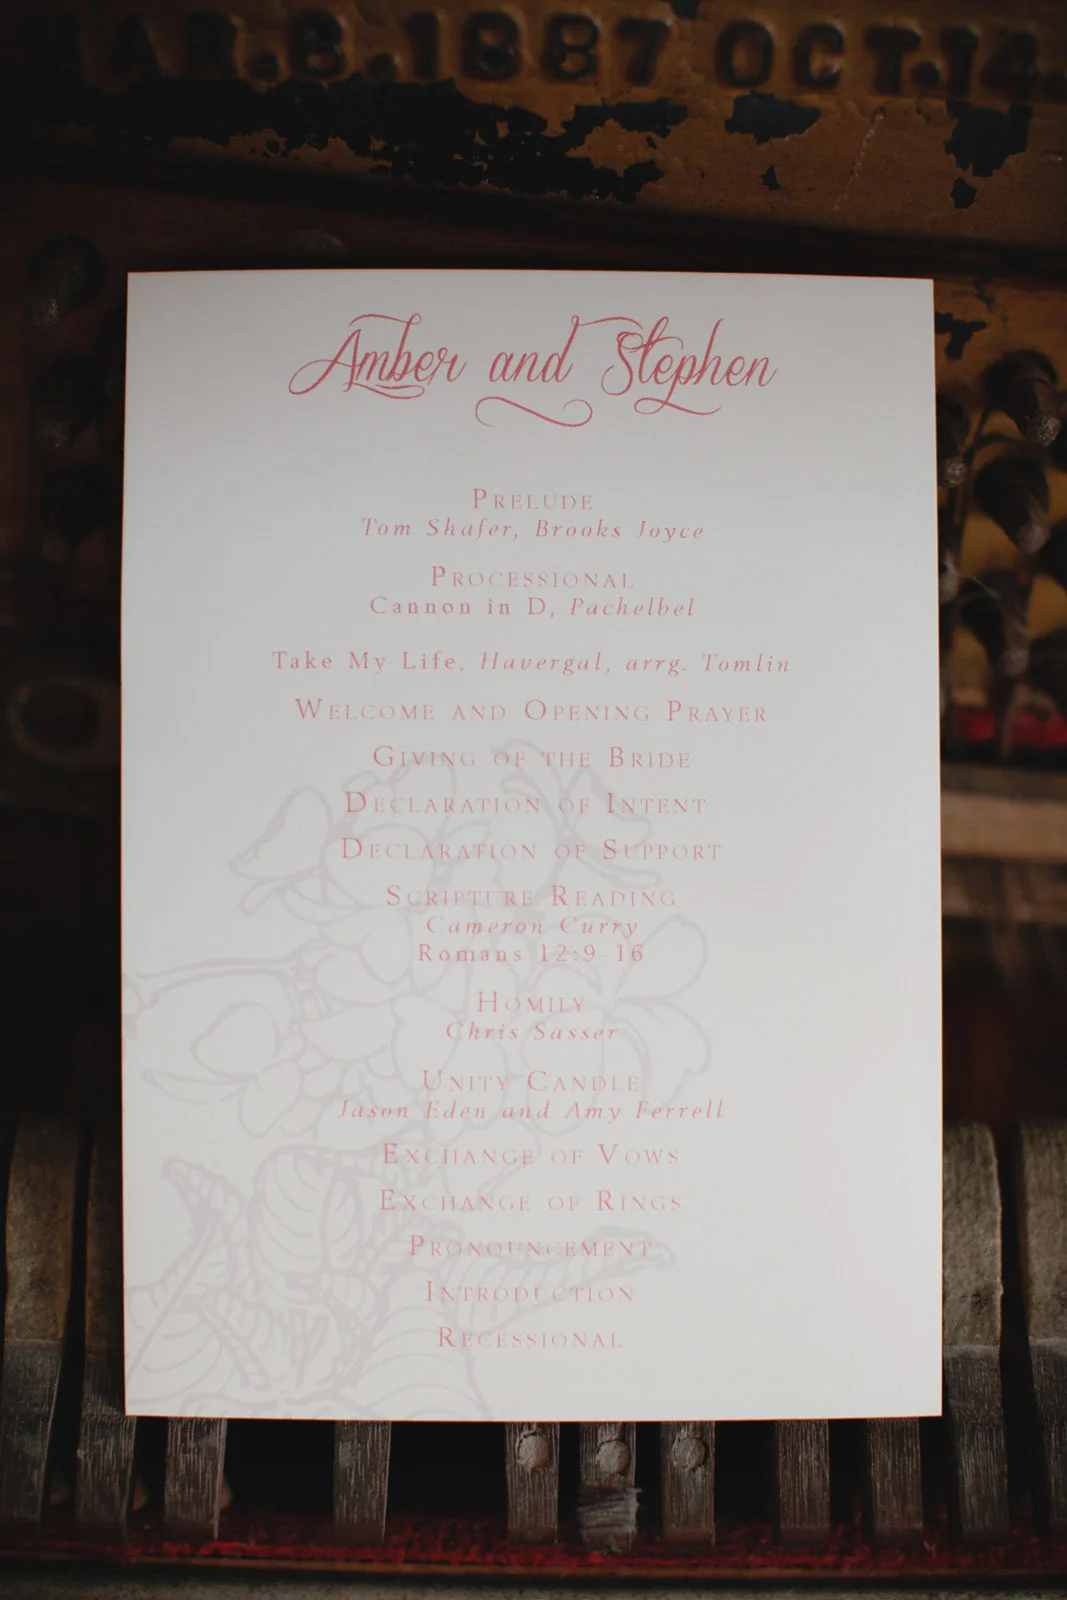 MAR.8.1887 OCT.14.
Amber and Stephen
Prelude
Tom Shafer, Brooks Joyce
Processional
Cannon in D, Pachelbel
Take My Life, Havergal, arrg. Tomlin
Welcome and Opening Prayer
Giving of the Bride
Declaration of Intent
Declaration of Support
Scripture Reading
Cameron Curry
Romans 12:9-16
Homily
Chris Sasser
Unity Candle
Jason Eden and Amy Ferrell
Exchange of Vows
Exchange of Rings
Pronouncement
Introduction
Recessional